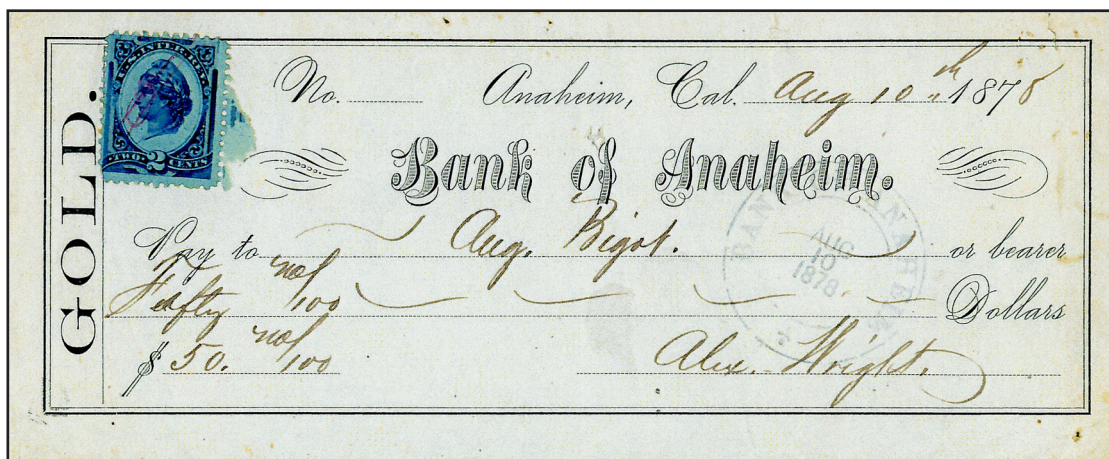 GOLD.
U.S. INTER. REV.
TWO 2 CENTS
No. Anaheim, Cal. Aug 10th 1878
Bank of Anaheim.
Pay to Aug. Bigot. or bearer
Fifty no/100 Dollars
$ 50. no/100 Alex. Wright.
BANK ANAHEIM
AUG
10
1878